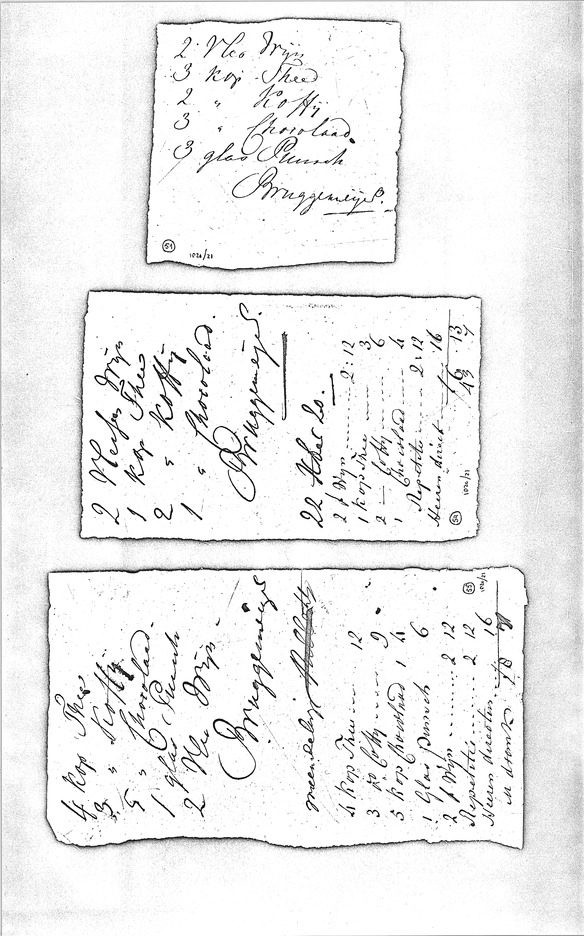 2 Vles Wijn
3 kop Thee
2 " Koffij
3 " Chocolaad.
3 glas Punsch
Bruggemeijer.
51
1020/21
2 Vlessen Wijn
1 kop Thee
2 " Koffij
1 " Chocolaad.
Bruggemeijer.
22
2 f Wijn ...... 2.12
1 kop Thee ---- 3
2 — Coffij ---- 6
1 Chocolaad ---- 4
Repetitie ---- 2.12
Heeren direct 16
54
1020/21
4 kop Thee
3 " Koffij
5 " Chocolaad.
1 glas Punsch
2 Vles Wijn
Bruggemeijer
4 kop Thee ---- 12
3 do Coffij ---- 9
5 kop Chocolaad 1 4
1 Glas Punsch 6
2 f Wijn ...... 2 12
Repetitie ...... 2 12
Heeren directeu 16
55
1020/21